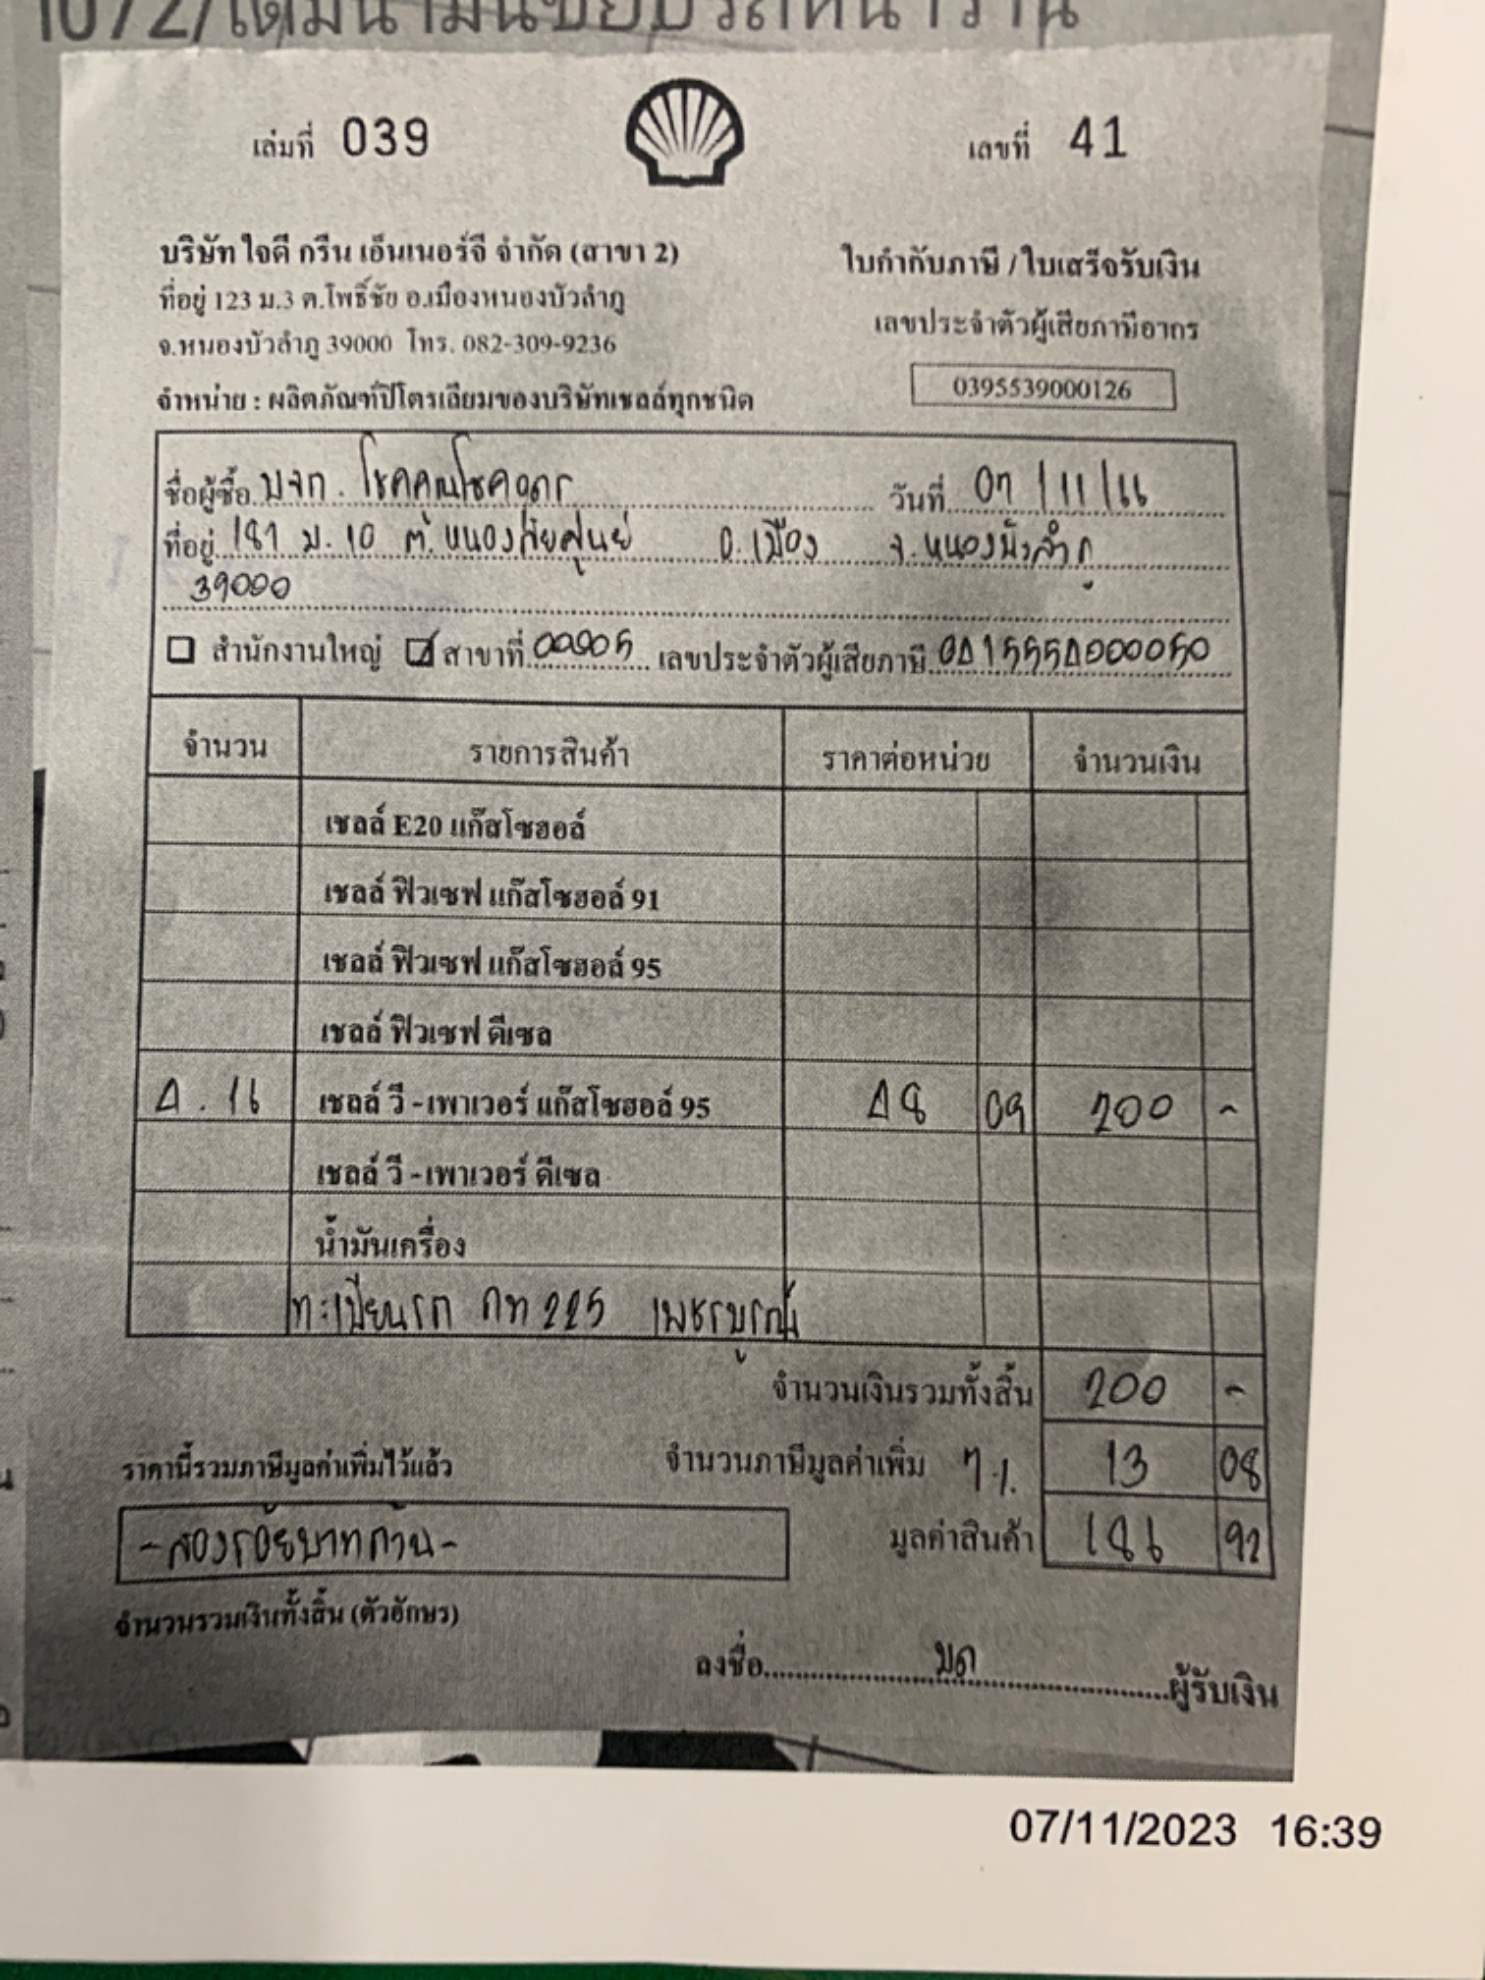 เล่มที่ 039
เลขที่ 41
บริษัท ใจดี กรีน เอ็นเนอร์จี จำกัด (สาขา 2)
ที่อยู่ 123 ม.3 ต.โพธิ์ชัย อ.เมืองหนองบัวลำภู
จ.หนองบัวลำภู 39000 โทร. 082-309-9236
จำหน่าย : ผลิตภัณฑ์ปิโตรเลียมของบริษัทเชลล์ทุกชนิด
ใบกำกับภาษี / ใบเสร็จรับเงิน
เลขประจำตัวผู้เสียภาษีอากร
0395539000126
ชื่อผู้ซื้อ บจก. วันที่ 07/11/66
ที่อยู่ 187 ม.10 ต. อ.เมือง จ.หนองบัวลำภู
39000
สำนักงานใหญ่ สาขาที่ 00005 เลขประจำตัวผู้เสียภาษี 0415550000050
จำนวน รายการสินค้า ราคาต่อหน่วย จำนวนเงิน
เชลล์ E20 แก๊สโซฮอล์
เชลล์ ฟิวเซฟ แก๊สโซฮอล์ 91
เชลล์ ฟิวเซฟ แก๊สโซฮอล์ 95
เชลล์ ฟิวเซฟ ดีเซล
4.16 เชลล์ วี - เพาเวอร์ แก๊สโซฮอล์ 95 48 09 200 -
เชลล์ วี - เพาเวอร์ ดีเซล
น้ำมันเครื่อง
ทะเบียนรถ กท 225 เพชรบูรณ์
จำนวนเงินรวมทั้งสิ้น 200 -
ราคานี้รวมภาษีมูลค่าเพิ่มไว้แล้ว จำนวนภาษีมูลค่าเพิ่ม 7% 13 08
-สองร้อยบาทถ้วน- มูลค่าสินค้า 186 92
จำนวนรวมเงินทั้งสิ้น (ตัวอักษร)
ลงชื่อ มด ผู้รับเงิน
07/11/2023 16:39